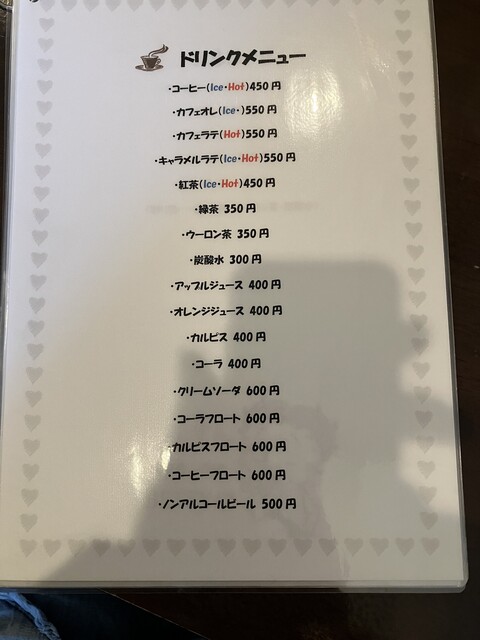 ドリンクメニュー
・コーヒー(Ice・Hot)450円
・カフェオレ(Ice・)550円
・カフェラテ(Hot)550円
・キャラメルラテ(Ice・Hot)550円
・紅茶(Ice・Hot)450円
・緑茶 350円
・ウーロン茶 350円
・炭酸水 300円
・アップルジュース 400円
・オレンジジュース 400円
・カルピス 400円
・コーラ 400円
・クリームソーダ 600円
・コーラフロート 600円
・カルピスフロート 600円
・コーヒーフロート 600円
・ノンアルコールビール 500円